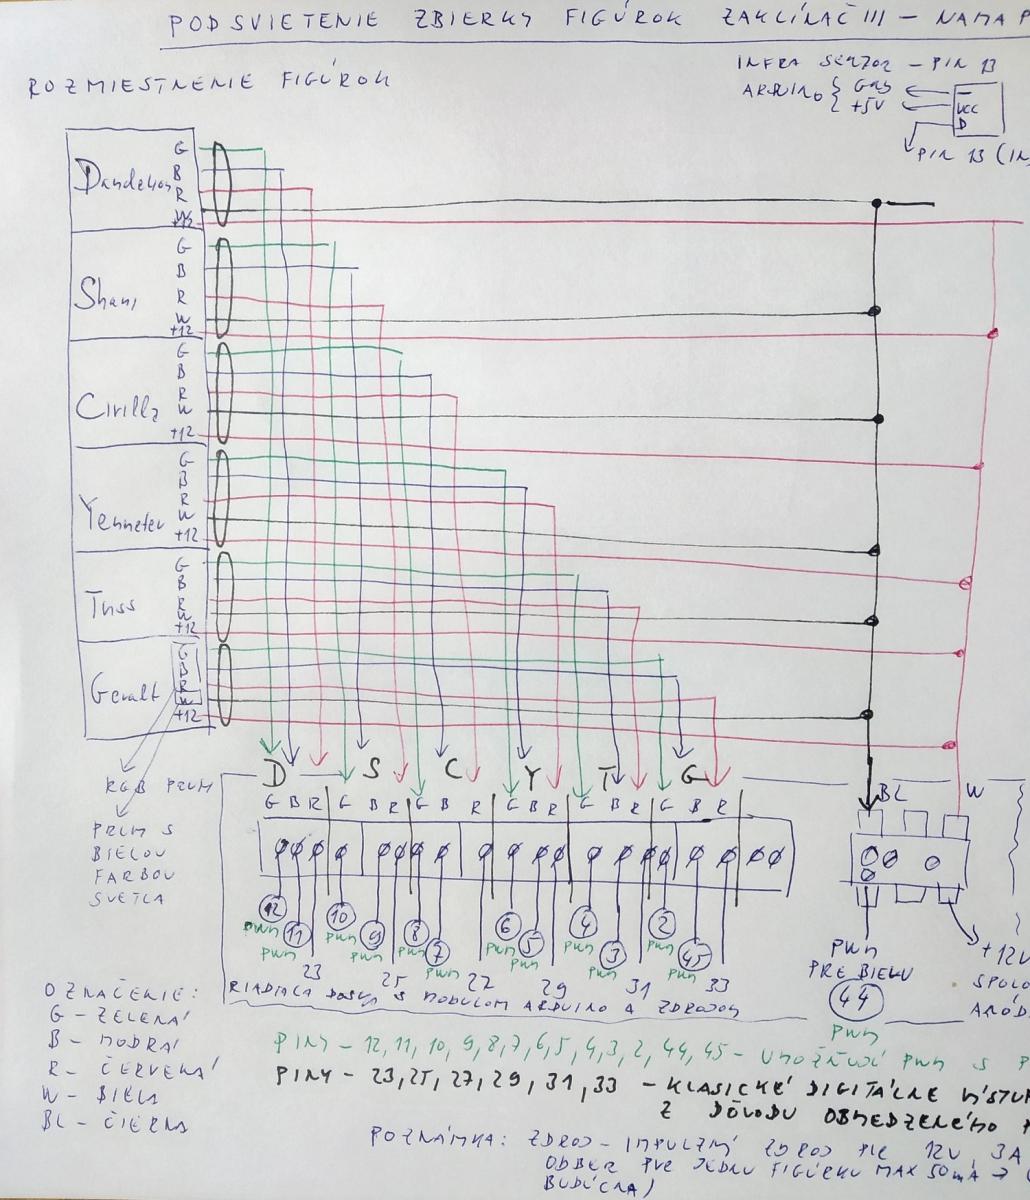 PODSVIETENIE ZBIERKY FIGÚROK ZAKLÍNAČ III – NAMA P
ROZMIESTNENIE FIGÚROK
INFRA SENZOR – PIN 13
ARDUINO { GND
+5V
–
VCC
D
PIN 13 (IN
Dandelion
G
B
R
W
+12
Shani
G
B
R
W
+12
Cirilla
G
B
R
W
+12
Yennefer
G
B
R
W
+12
Triss
G
B
R
W
+12
Geralt
G
B
R
W
+12
RGB PRUH
PRUH S
BIELOU
FARBOU
SVETLA
D S C Y T G
G B R G B R G B R G B R G B R G B R
BL W
12 11 10 9 8 7 6 5 4 3 2 45
PWM PWM PWM PWM PWM PWM PWM PWM PWM PWM PWM PWM
23 25 27 29 31 33
RIADIACA DOSKA S MODULOM ARDUINO A ZDROJOM
PWM
PRE BIELU
44
PWM
+12V
SPOLO
ANÓD
OZNAČENIE:
G – ZELENÁ
B – MODRÁ
R – ČERVENÁ
W – BIELA
BL – ČIERNA
PINY – 12, 11, 10, 9, 8, 7, 6, 5, 4, 3, 2, 44, 45 – UMOŽŇUJÚ PWM S P
PINY – 23, 25, 27, 29, 31, 33 – KLASICKÉ DIGITÁLNE VÝSTUP
Z DÔVODU OBMEDZENÉHO P
POZNÁMKA: ZDROJ – IMPULZNÝ ZDROJ PRE 12V, 3A
ODBER PRE JEDNU FIGÚRKU MAX 50mA →